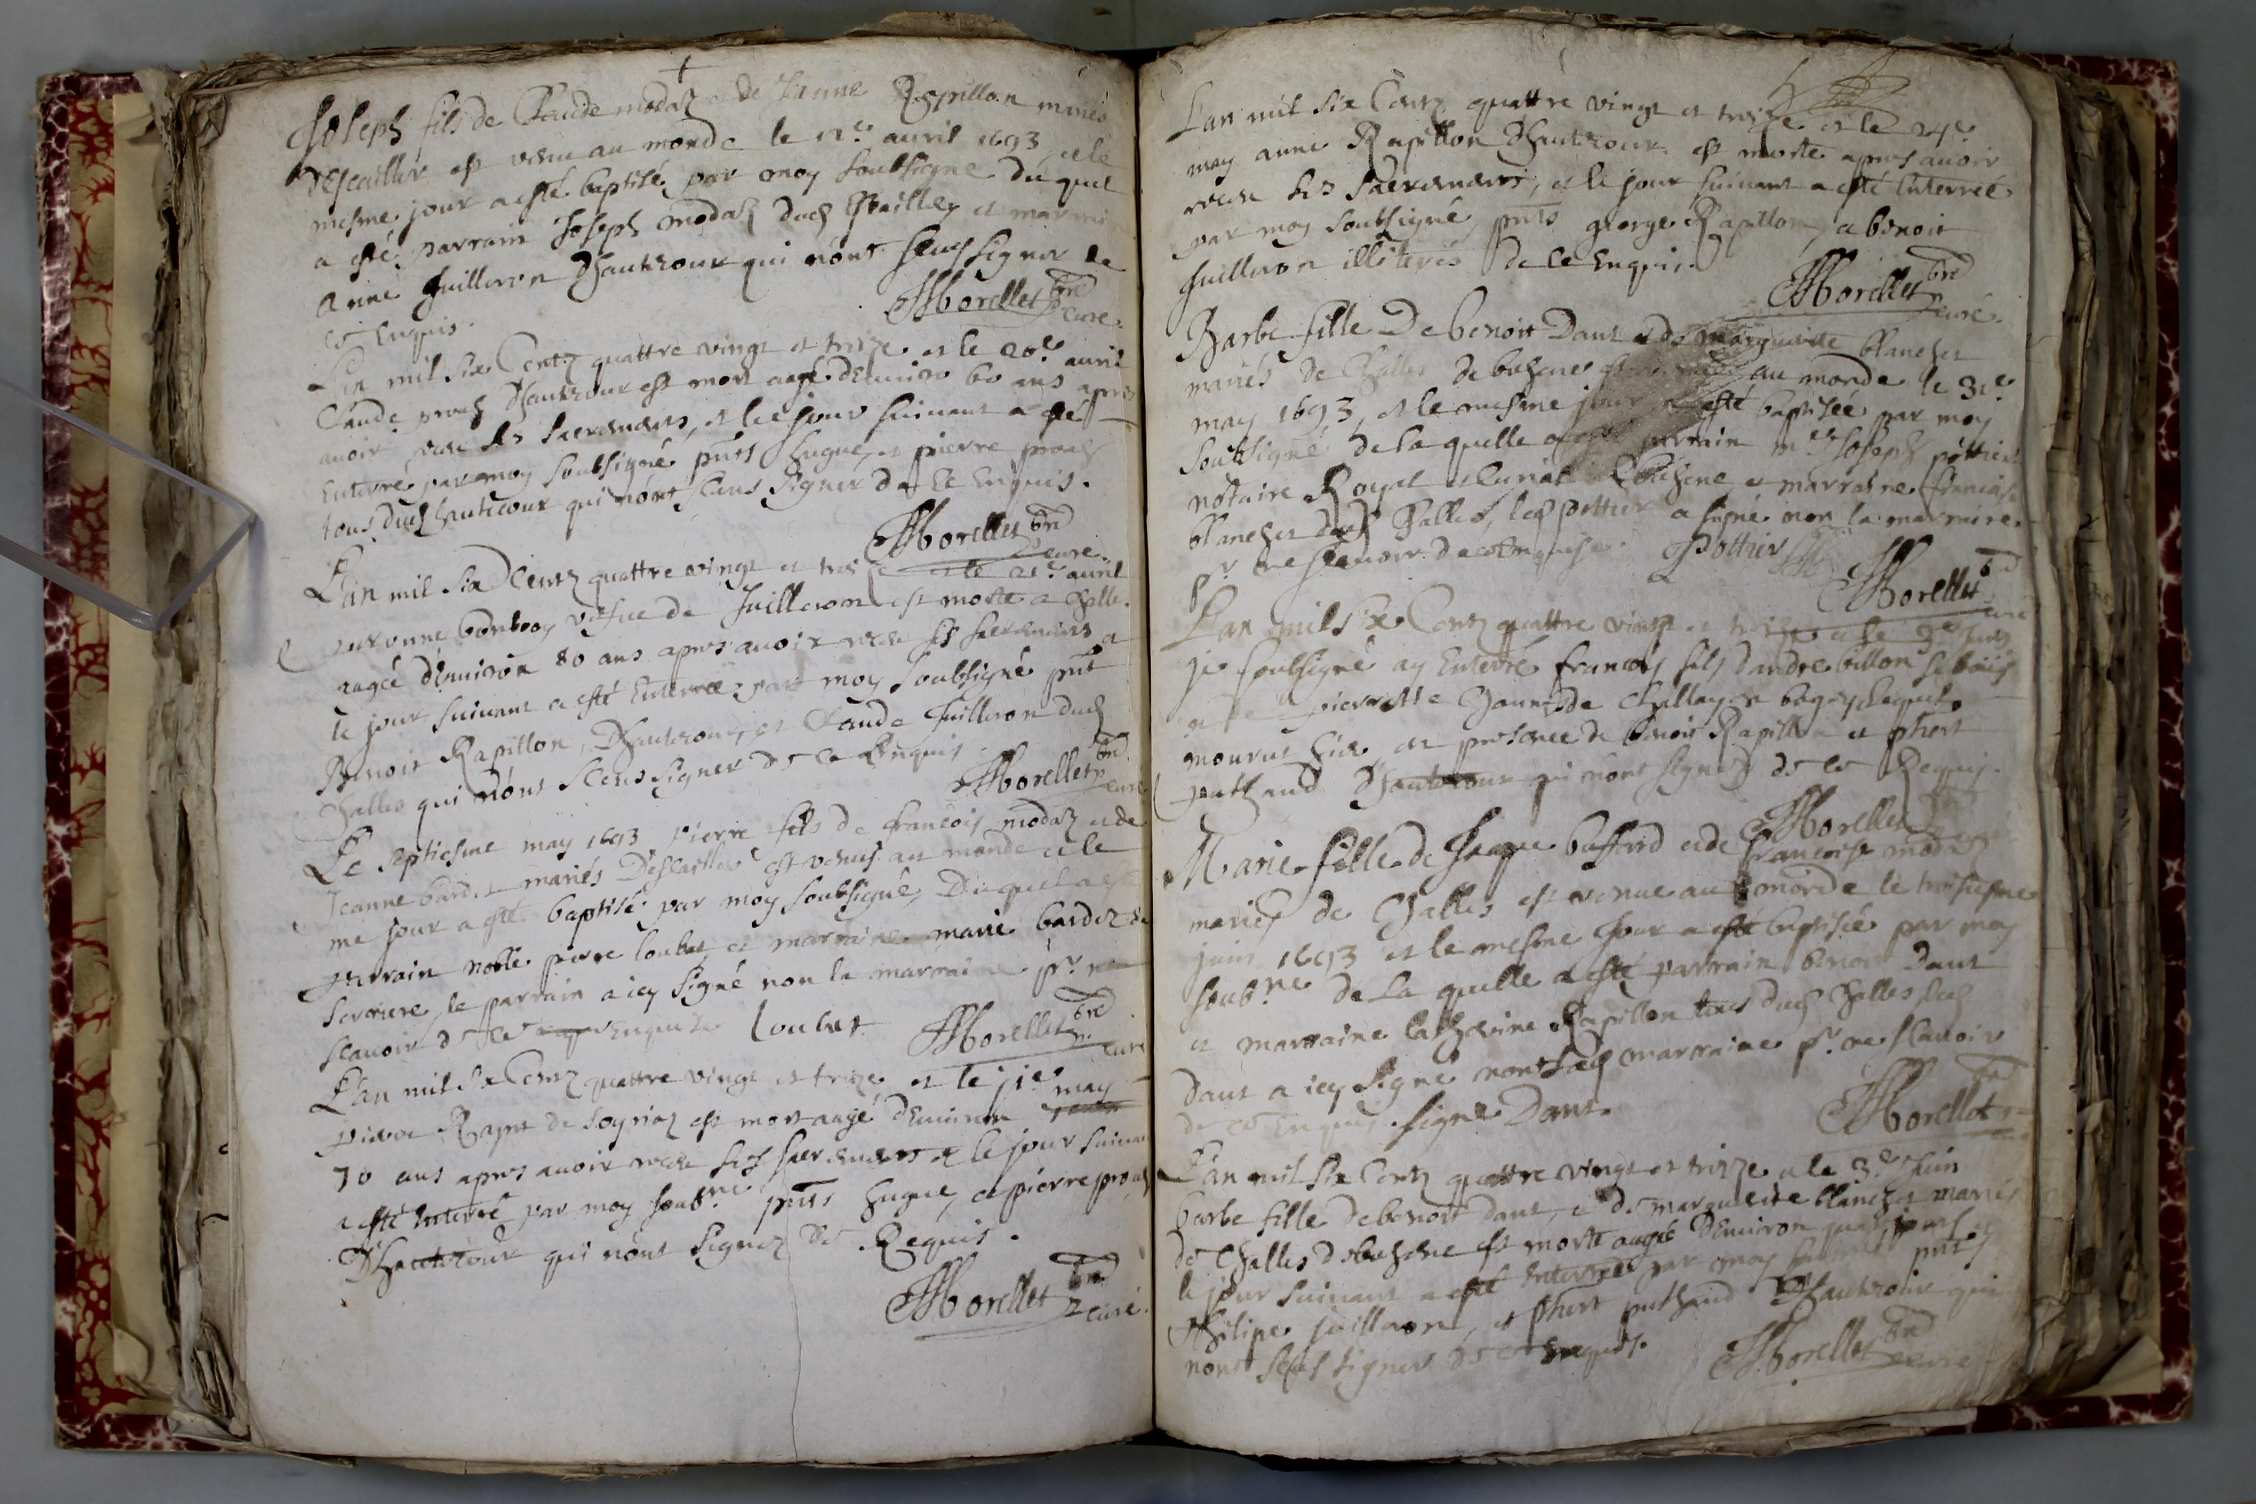 Joseph fils de Claude modaz et de Jeanne Rapillon mariés
d'Escailles est venu au monde le 11e avril 1693, et le
mesme jour a esté baptisé par moy soubsigné duquel
a esté parrain Joseph modaz dud Escailles et marraine
anne Juilleron d'hautecour qui n'ont sceus signer de
ce Enquis. Morellet bnd curé.
L'an mil six Centz quattre vingt et treize et le 20e avril
Claude proch d'hautecour est mort aagé d'Environ 60 ans apres
avoir receu ses sacremens, et le jour suivant a esté
Enterré par moy soubsigné pnts hugue, et pierre proch
tous dud hautecour qui n'ont sceus signer de ce Enquis.
Morellet bnd curé.
L'an mil six Centz quattre vingt et treize et le 21e avril
bonboy vefue de Juilleron est morte a Challes
aagée d'Environ 80 ans apres avoir receu ses sacremens et
le jour suivant a esté Enterrée par moy soubsigné pnt
Benoit Rapillon, d'hautecour, et Claude Juilleron dud
Challes qui n'ont sceus signer de ce Enquis.
Morellet bnd curé
Le septiesme may 1693 pierre fils de francois modaz et de
Jeanne mariés d'Escailles est venus au monde et le
me jour a esté baptisé par moy soubsigné, Duquel a esté
parrain noble pierre loubat, et marraine marie bardet
le parrain a icy signé non la marraine pr ne
scavoir de ce enquise Loubat Morellet bnd curé
L'an mil six Centz quattre vingt et treize et le 11e may
pierre de soyriaz est mort aagé d'Environ
70 ans apres avoir receu ses sacremens et le jour suivant
a esté Interré par moy soubne pnts hugue, et pierre proch
D'hautecour qui n'ont signez de Requis.
Morellet bnd curé.
L'an mil six Centz quattre vingt et treize et le 24e
may anne Rapillon d'hautecour est morte apres avoir
receu ses sacremens, et le jour suivant a esté Enterrée
par moy soubsigné, pnts george Rapillon, et benoit
Juilleron illiterés de ce Enquis.
Morellet bnd curé.
Barbe fille De benoit Dant et de marguerite blanchet
mariés de Challes de bohene est venue au monde le 31e
may 1693, et le mesme jour a esté baptisée par moy
soubsigné de la quelle a esté parrain me Joseph pottier
notaire Royal et Curial de bohene et marraine francoise
blanchet dud Challes, led pottier a signé non la marraine
pr ne scavoir de ce enquise. Pottier Morellet bnd curé
L'an mil six Centz quattre vingt et treize et le 3e Juin
je soubsigné ay Enterré francois fils d'andre billon
et de pierrette de lequel
mourut hier en presence de benoit Rapillon et phert
puthaud d'hautecour qui n'ont signez de ce Requis.
Morellet bnd
Marie fille de Jaque buffard et de francoise modaz
mariés de Challes est venue au monde le troisiesme
juin 1693 et le mesme Jour a esté baptisée par moy
soubne de La quelle a esté parrain benoit Dant
et marraine Catherine Rapillon tous dud Challes, led
Dant a icy signé non lad marraine pr ne scavoir
de ce Enquis. signe Dant.
Morellet
L'an mil six Centz quattre vingt et treize et le 3e Juin
barbe fille de benoit dant, et de marguerite blanchet mariés
de Challes de bohene est morte aagée d'Environ quatre jours et
le jour suivant a esté Interrée par moy pnts
Philipe juilleron, et phert puthaud d'hautecour qui
n'ont sceus signer de ce Enquis.
Morellet bnd curé